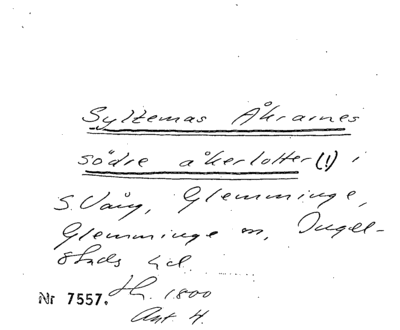 Syltemas Åkrarnes
södre åkerlotter (!) i
S. Vång, Glemminge,
Glemminge sn, Ingel-
stads hd.
Nr 7557. Hr. 1800
Ant. 4.